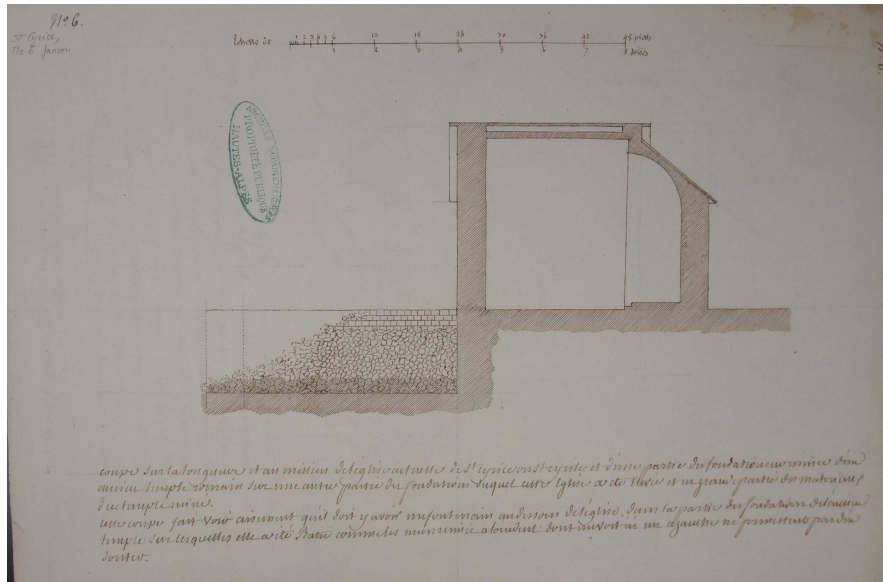 N.º 6.
St Cyrice,
Echelle de
1 2 3 4 5 6 12 18 24 30 36 42 48 pieds
1 2 3 4 5 6 7 8
PROPRIÉTÉ PUBLIQUE
HAUTES-ALPES
coupe sur la longueur et au millieu de l'église actuelle de St Cyrice ou St cyrite et d'une partie des fondations en ruine d'un
ancien temple romain sur une autre partie des fondations duquel cette Eglise a été Elevée et en grande partie des matériaux
du temple ruiné.
cette coupe fait voir aisement qu'il doit y avoir un souterrain au dessous de l'église, dans la partie des fondations de l'ancien
temple sur lesquelles elle a été Batie comme les murs ruinés dont on voit ici un à gauche ne permettent pas d'en
douter.